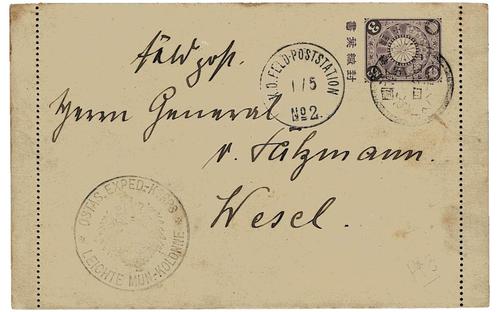 Feldpost.
K.D. FELD-POSTSTATION
1/5
No 2.
3
書葉緘封
Herrn General
v. Salzmann.
Wesel.
* OSTAS. EXPED.-KORPS *
LEICHTE MUN.-KOLONNE